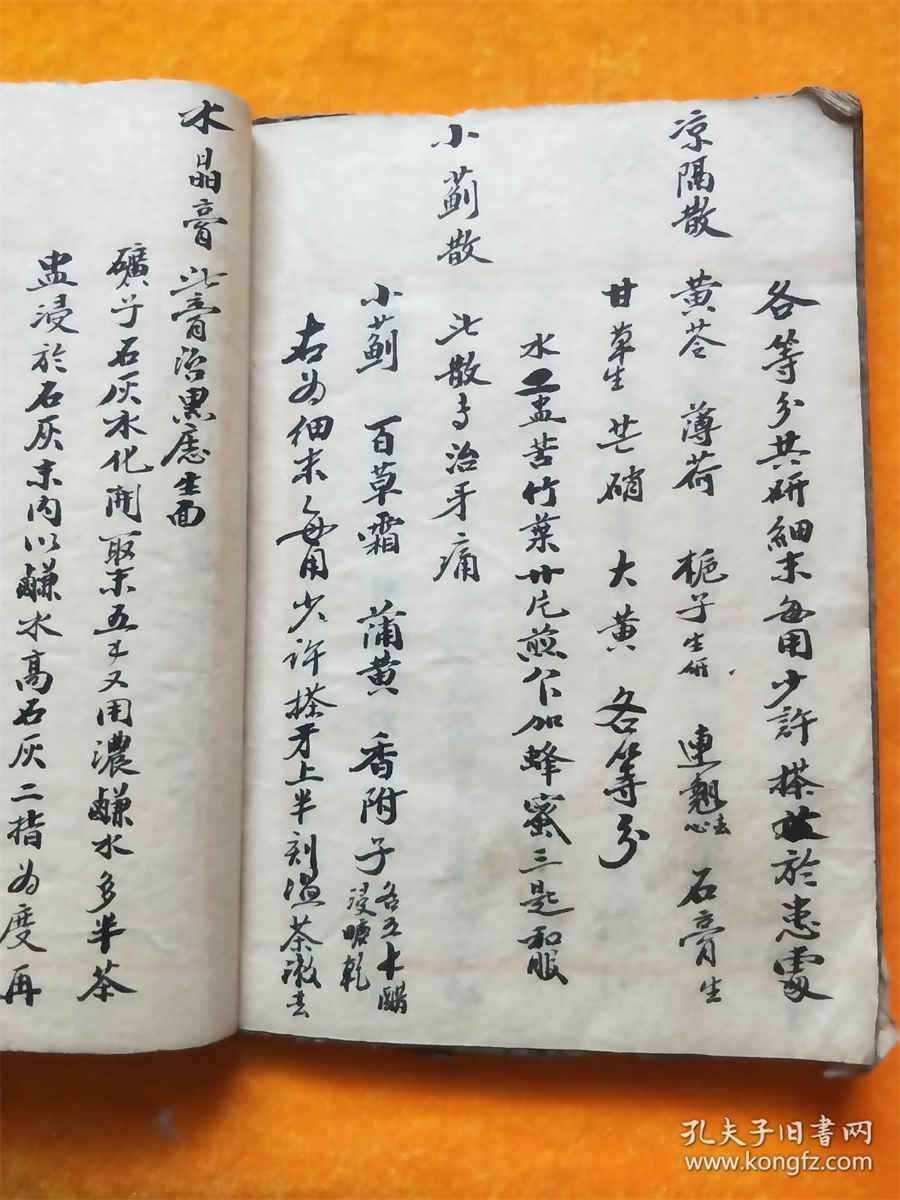 各等分共研細末每用少許搽敷於患處
凉隔散 黄芩 薄荷 梔子生研 連翹去心 石膏生
甘草生 芒硝 大黄 各等分
水二盅苦竹葉廿片煎八加蜂蜜三匙和服
小薊散 此散專治牙痛
小薊 百草霜 蒲黄 香附子各五十醋浸晒乾
右為細末每用少許搽牙上半刻温茶漱去
水晶膏 此膏治黑痣生面
礦子石灰水化開取末五又用濃鹻水多半茶
盅浸於石灰末内以鹻水高石灰二指為度再
孔夫子旧书网
www.kongfz.com